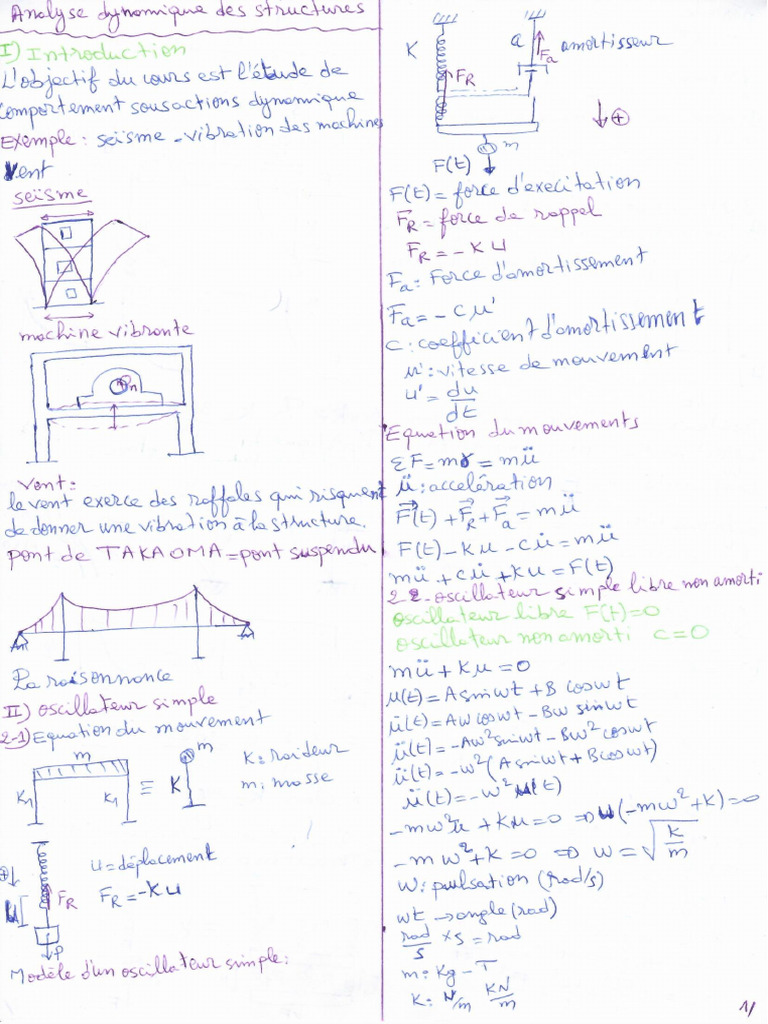 Analyse dynamique des structures
I) Introduction
L'objectif du cours est l'étude de
comportement sous actions dynamique
Exemple : seisme - vibration des machines
vent
seïsme
machine vibrante
Vent :
le vent exerce des raffales qui risquent
de donner une vibration à la structure.
pont de TAKAOMA = pont suspendu
La raisonnance
II) oscillateur simple
2-1) Equation du mouvement
m
K1 K1 ≡ K m
K : raideur
m : masse
u = déplacement
FR = -K u
⊕ u FR P
Modèle d'un oscillateur simple :
K FR a Fa amortisseur
⊕
m
F(t)
F(t) = force d'execitation
FR = force de rappel
FR = -K u
Fa : Force d'amortissement
Fa = -c u'
C : coefficient d'amortissement
u' : vitesse de mouvement
u' = du/dt
Equation du mouvements
ΣF = mγ = mü
ü : acceleration
F(t) + FR + Fa = mü
F(t) - Ku - cu̇ = mü
mü + cü + ku = F(t)
2-2- oscillateur simple libre non amorti
oscillateur libre F(t)=0
oscillateur non amorti c=0
mü + Ku = 0
u(t) = A sin wt + B cos wt
u̇(t) = Aw cos wt - Bw sin wt
ü(t) = -Aw² sin wt - Bw² cos wt
ü(t) = -w² (A sin wt + B cos wt)
ü(t) = -w² u(t)
-mw²u + Ku = 0 ⇒ u(-mw² + k) = 0
-mw² + k = 0 ⇒ w = √(k/m)
w : pulsation (rad/s)
wt → angle (rad)
rad/s × s = rad
m : Kg - T
K : N/m KN/m
1/